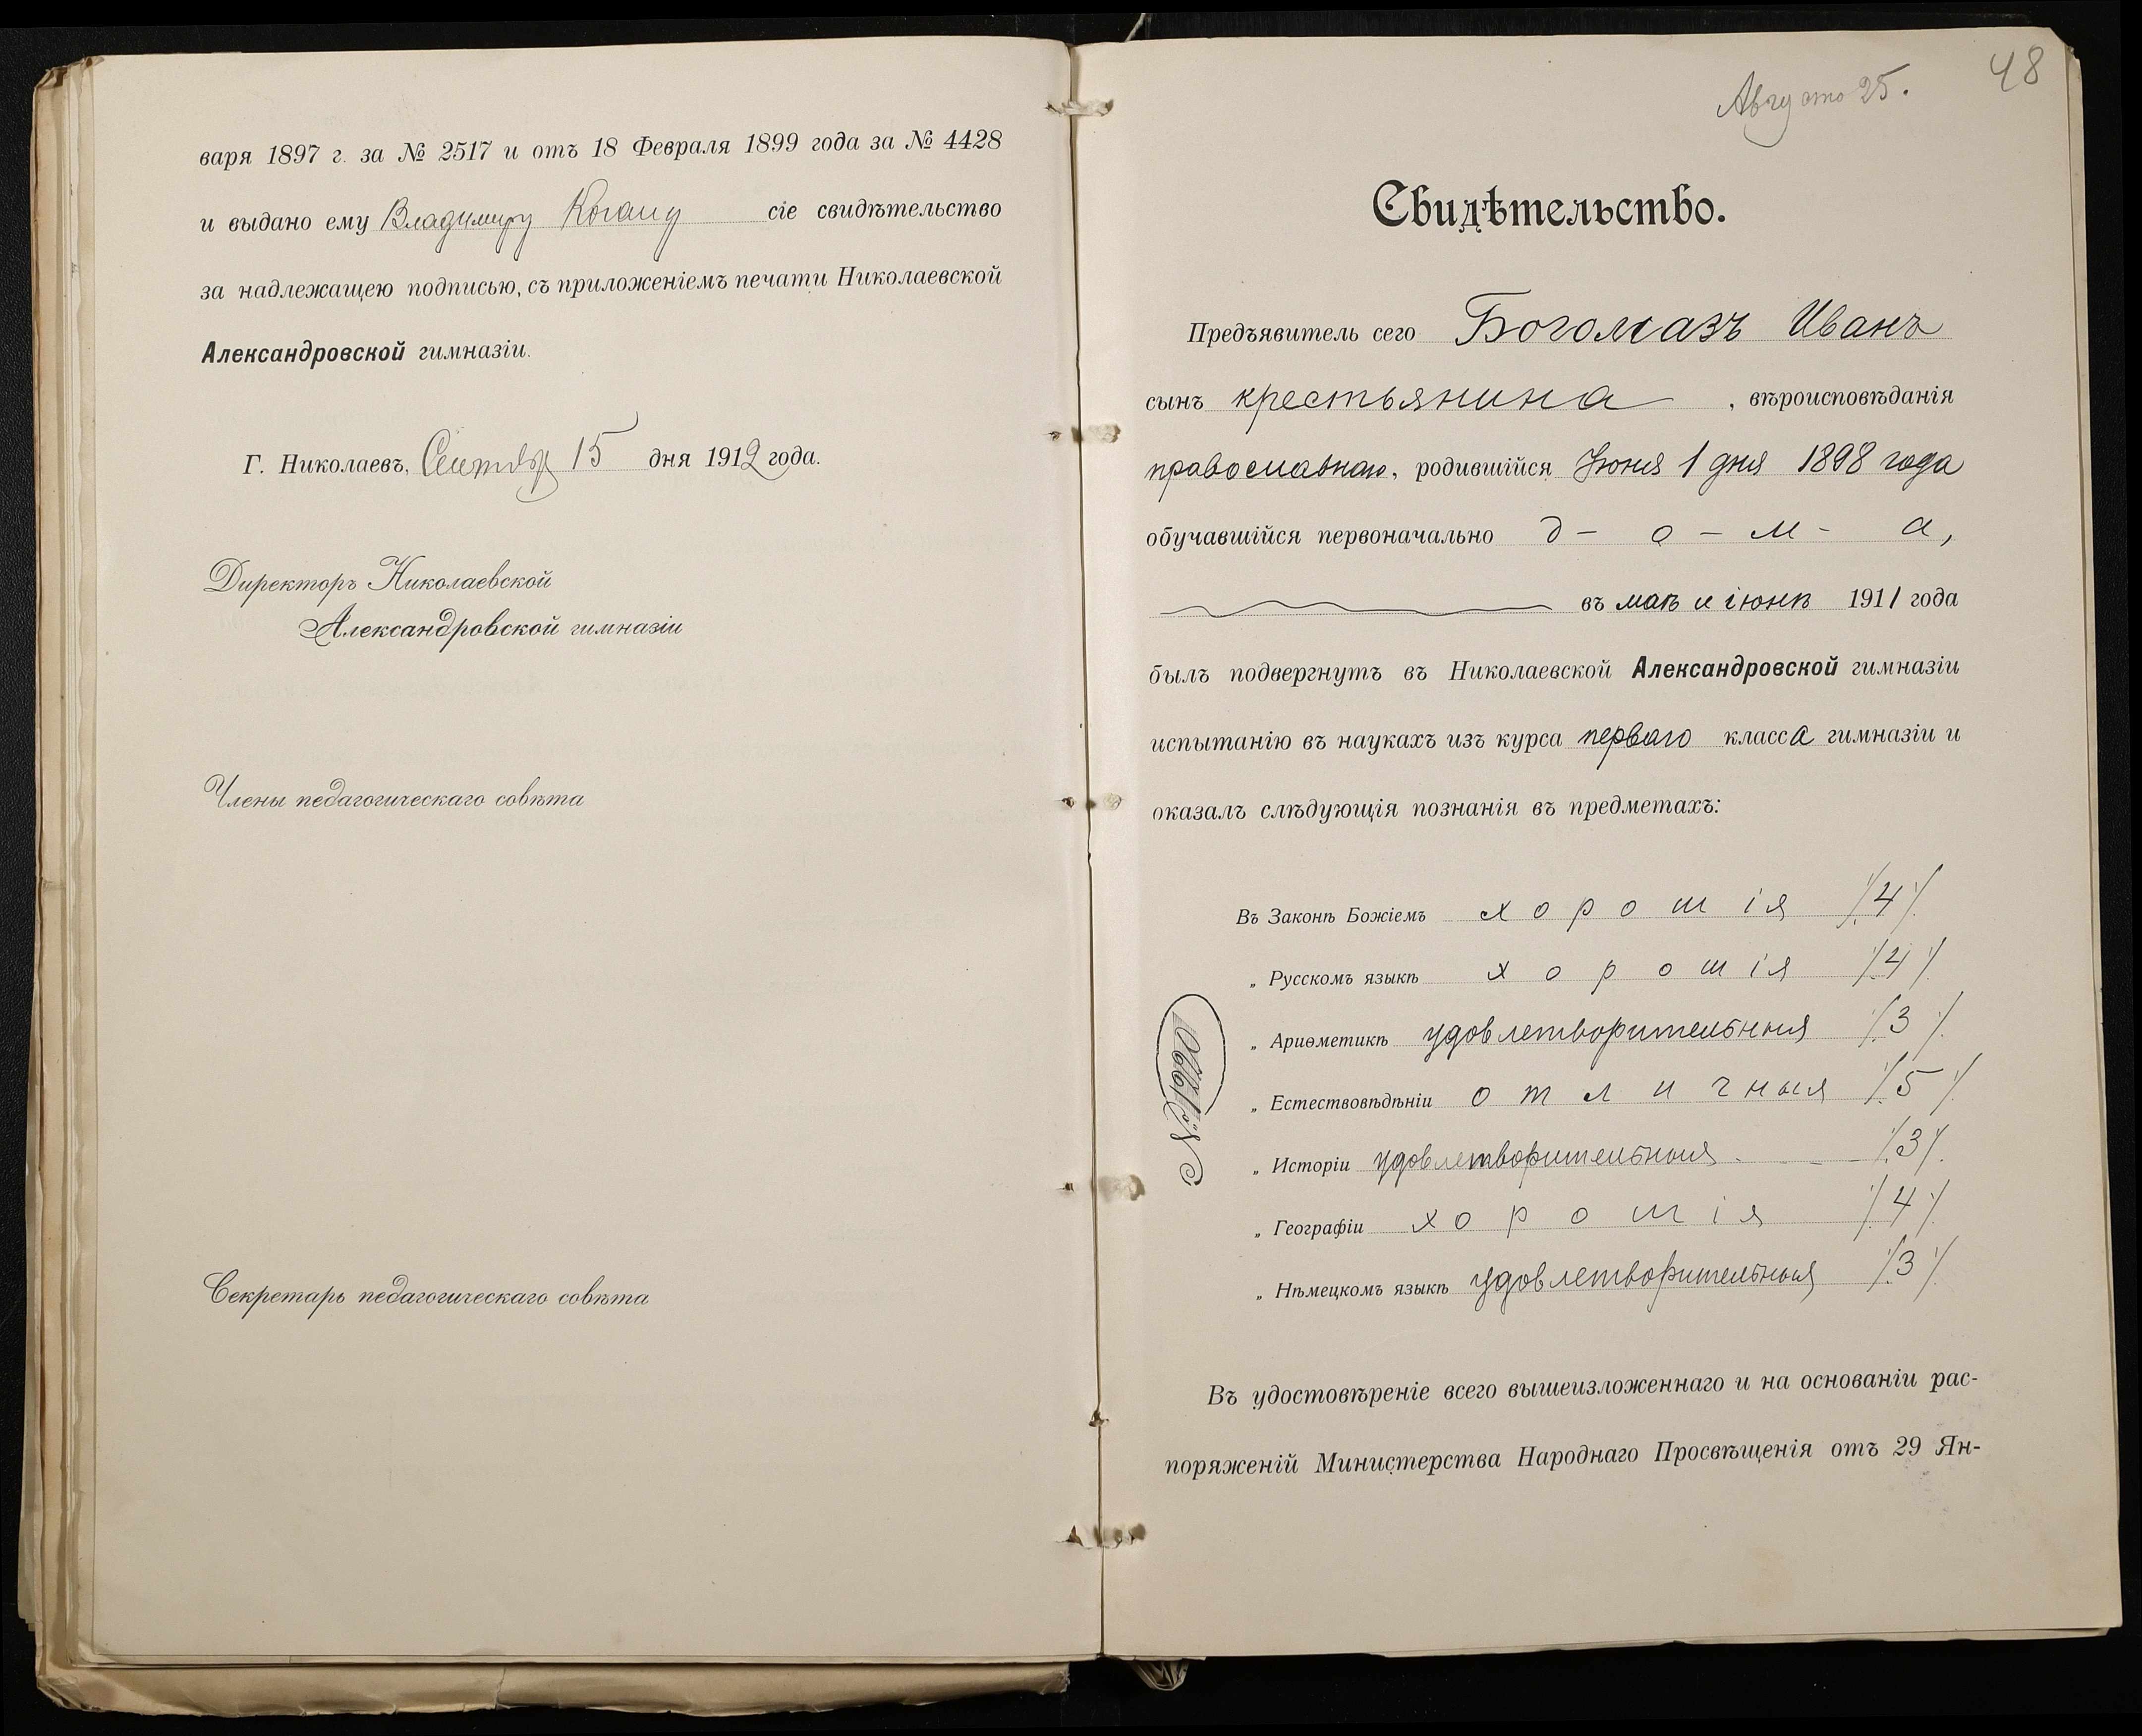 варя 1897 г. за № 2517 и отъ 18 Февраля 1899 года за № 4428
и выдано ему Владимиру Когану сіе свидѣтельство
за надлежащею подписью, съ приложеніемъ печати Николаевской
Александровской гимназіи.
Г. Николаевъ, Сентябр 15 дня 1912 года.
Директоръ Николаевской
Александровской гимназіи
Члены педагогическаго совѣта
Секретарь педагогическаго совѣта
48
Августа 25.
Свидѣтельство.
Предъявитель сего Богомазъ Иванъ
сынъ крестьянина, вѣроисповѣданія
православнаго, родившійся Іюня 1 дня 1898 года
обучавшійся первоначально д - о - м - а,
въ маѣ и іюнѣ 1911 года
былъ подвергнутъ въ Николаевской Александровской гимназіи
испытанію въ наукахъ изъ курса перваго класса гимназіи и
оказалъ слѣдующія познанія въ предметахъ:
Въ Законѣ Божіемъ хорошія /4/.
„ Русскомъ языкѣ хорошія /4/.
„ Ариѳметикѣ удовлетворительныя /3/.
„ Естествовѣдѣніи отличныя /5/.
„ Исторіи удовлетворительныя /3/.
„ Географіи хорошія /4/.
„ Нѣмецкомъ языкѣ удовлетворительныя /3/.
Въ удостовѣреніе всего вышеизложеннаго и на основаніи рас-
поряженій Министерства Народнаго Просвѣщенія отъ 29 Ян-